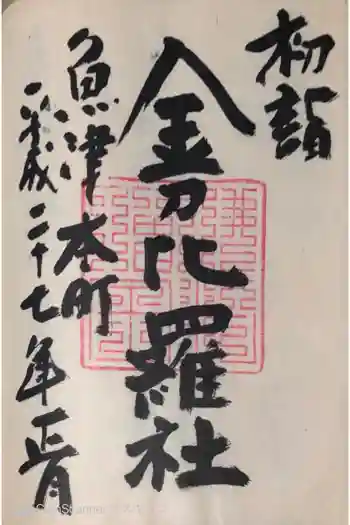 初詣
金刀比羅社
魚津本町
平成二十七年正月